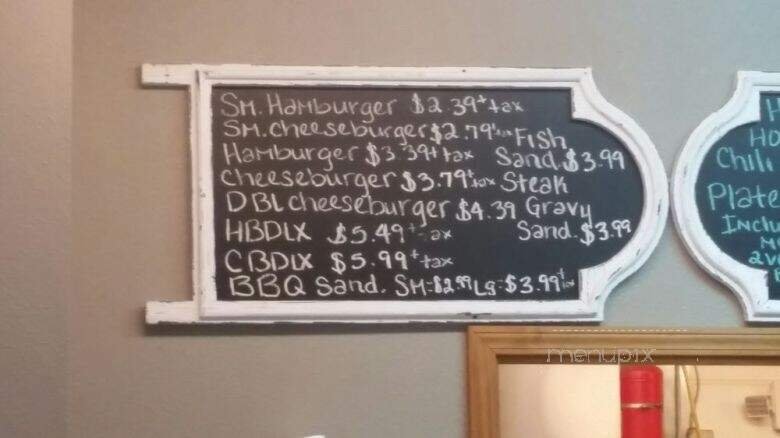 Sm. Hamburger $2.39+tax
Sm. cheeseburger $2.79+tax
Hamburger $3.39+tax
cheeseburger $3.79+tax
DBL cheeseburger $4.39
HBDLX $5.49+tax
CBDLX $5.99+tax
BBQ Sand. Sm-$2.99 Lg-$3.99+tax
Fish
Sand. $3.99
Steak
Gravy
Sand. $3.99
Chili
Plate
2
menupix